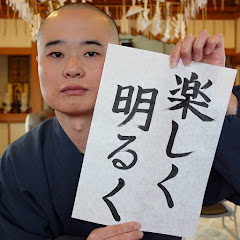 楽しく
明るく